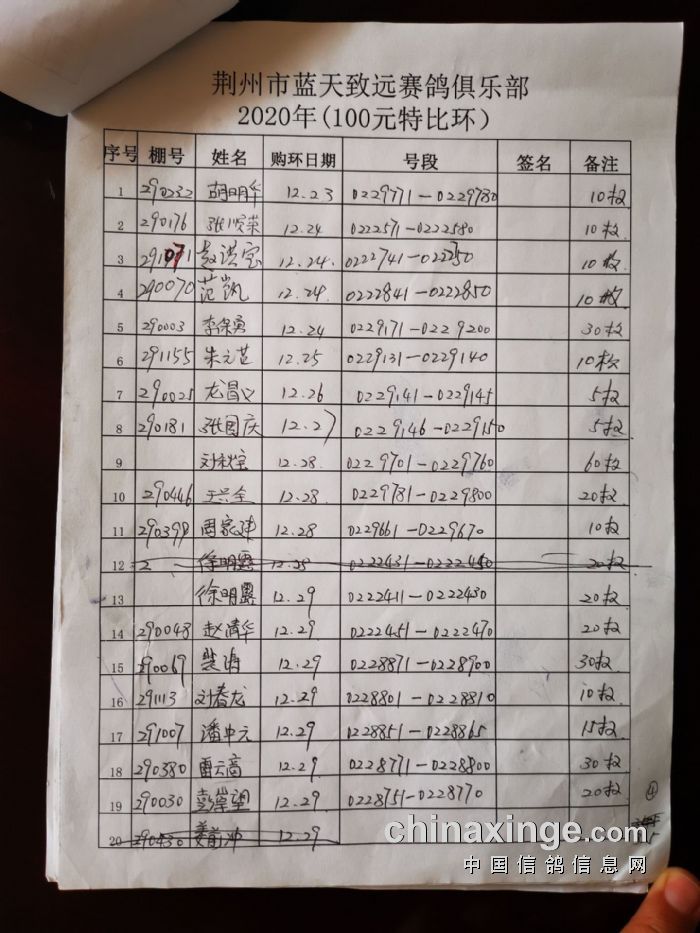 荆州市蓝天致远赛鸽俱乐部
2020年(100元特比环)
序号 棚号 姓名 购环日期 号段 签名 备注
1 290232 胡明华 12.23 0229771-0229780 10枚
2 290176 张顺荣 12.24 0222571-0222580 10枚
3 291071 赵洪宝 12.24. 0222741-022250 10枚
4 290070 范凯 12.24 0222841-0222850 10枚
5 290003 李保勇 12.24 0229171-0229200 30枚
6 291155 朱元芑 12.25 0229131-0229140 10枚
7 290025 龙昌义 12.26 0229141-0229145 5枚
8 290181 张国庆 12.27 0229146-0229150 5枚
9 刘秋宝 12.28. 0229701-0229760 60枚
10 290446 王兴全 12.28. 0229781-0229800 20枚
11 290399 周家建 12.28 0229661-0229670 10枚
12 2 徐明露 12.28 0222431-0222450 20枚
13 徐明露 12.29 0222411-0222430 20枚
14 290048 赵清华 12.29 0222451-0222470 20枚
15 290069 裴涛 12.29 0228871-0228900 30枚
16 291113 刘春龙 12.29 0228801-0228810 10枚
17 291007 潘中元 12.29 0228851-0228865 15枚
18 290380 雷云高 12.29. 0228771-0228800 30枚
19 290030 彭学望 12.29. 0228751-0228770 20枚
④
20 290430 姜前冲 12.29
chinaxinge.com
中国信鸽信息网